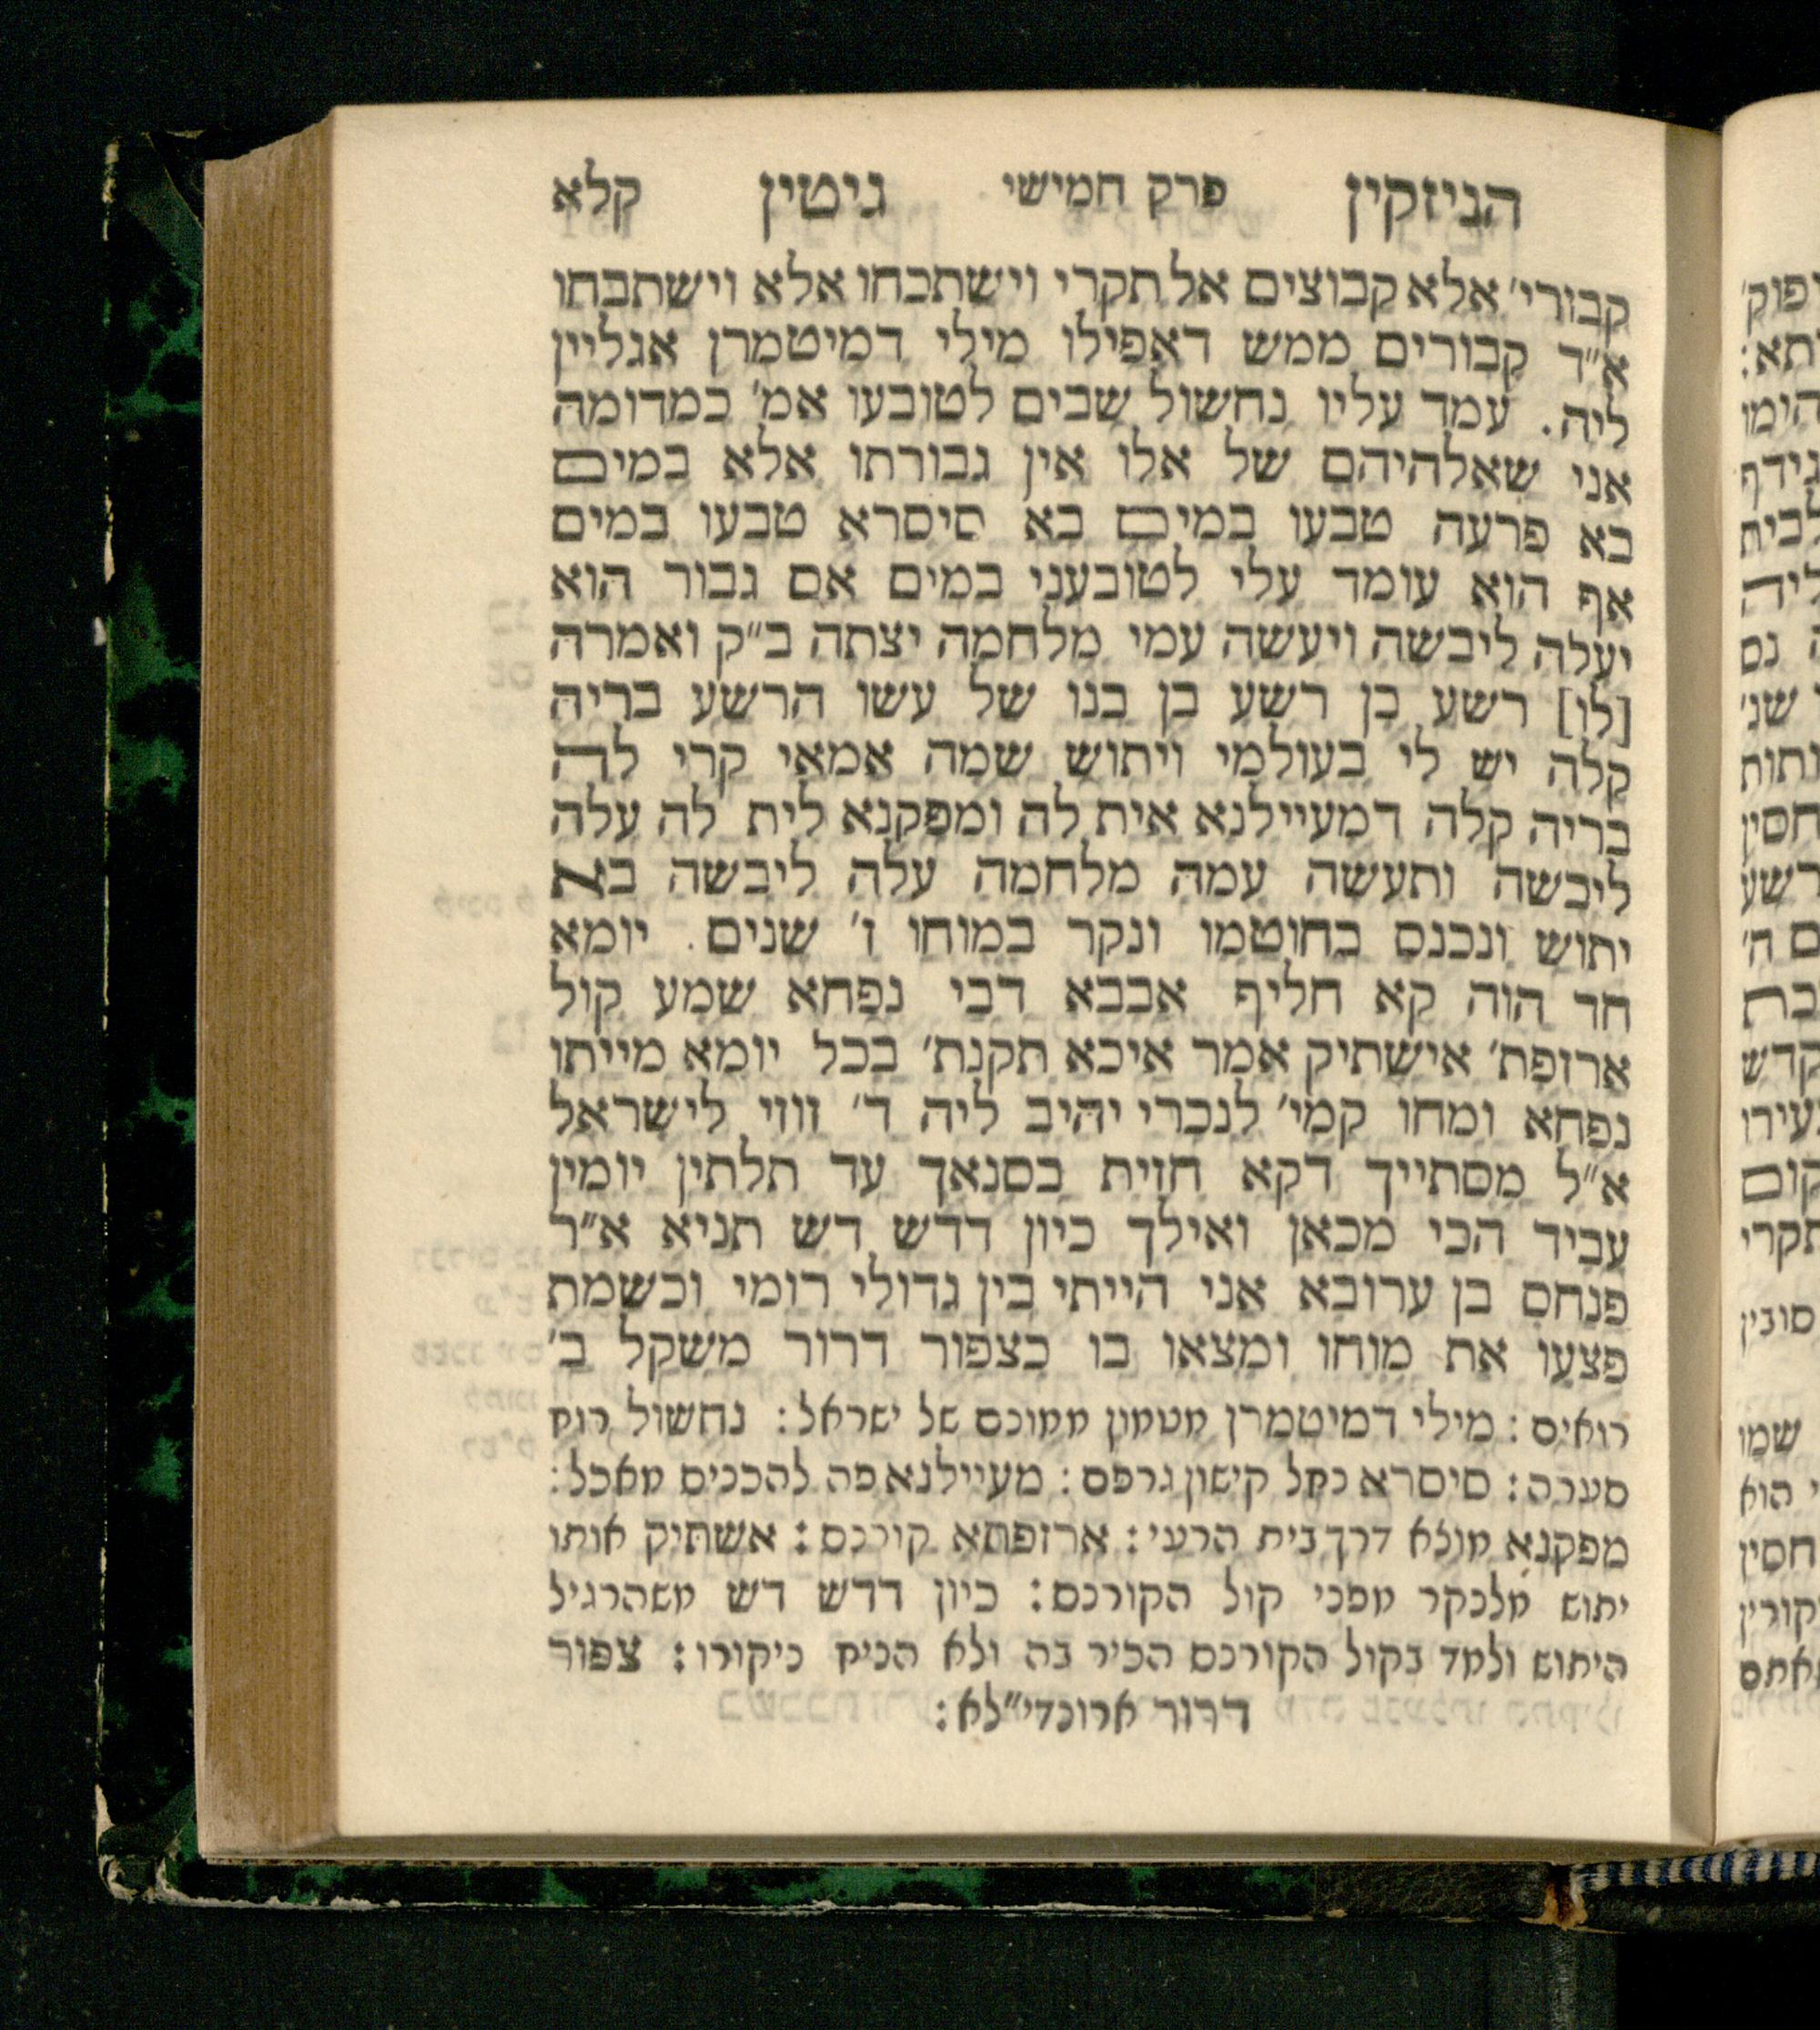 הניזקין פרק חמישי גיטין קלא
קבורי׳ אלא קבוצים אל תקרי וישתכחו אלא וישתבחו
א״ד קבורים ממש דאפילו מילי דמיטמרן אגליין
ליה. עמד עליו נחשול שבים לטובעו אמ׳ כמדומה
אני שאלהיהם של אלו אין גבורתו אלא במים
בא פרעה טבעו במים בא סיסרא טבעו במים
אף הוא עומד עלי לטובעני במים אם גבור הוא
יעלה ליבשה ויעשה עמי מלחמה יצתה ב״ק ואמרה
[לו] רשע בן רשע בן בנו של עשו הרשע בריה
קלה יש לי בעולמי ויתוש שמה אמאי קרי לה
בריה קלה דמעיילנא אית לה ומפקנא לית לה עלה
ליבשה ותעשה עמה מלחמה עלה ליבשה בא
יתוש ונכנס בחוטמו ונקר במוחו ז׳ שנים. יומא
חד הוה קא חליף אבבא דבי נפחא שמע קול
ארזפת׳ אישתיק אמר איכא תקנת׳ בכל יומא מייתו
נפחא ומחו קמי׳ לנכרי יהיב ליה ד׳ זוזי לישראל
א״ל מסתייך דקא חזית בסנאך עד תלתין יומין
עביד הכי מכאן ואילך כיון דדש דש תניא א״ר
פנחס בן ערובא אני הייתי בין גדולי רומי וכשמת
פצעו את מוחו ומצאו בו כצפור דרור משקל ב׳
רואים: מילי דמיטמרן מטמון ממונם של ישראל: נחשול רוח
סערה: סיסרא נחל קישון גרפם: מעיילנא פה להכניס מאכל:
מפקנא מוצא דרך בית הרעי: ארזפתא קורנס: אשתיק אותו
יתוש מלנקר מפני קול הקורנס: כיון דדש דש משהרגיל
היתוש ולמד בקול הקורנס הכיר בה ולא הניח ניקורו: צפור
דרור ארונדי״לא:
יפוק׳
תא:
הימו
גידף
לבית
ליה
גם
שנ׳
ותות
חסין
רשע
ם ה׳
בת
קדש
עירו
קום
תקרי
סובין
שמו
הוא
חסין
קורין